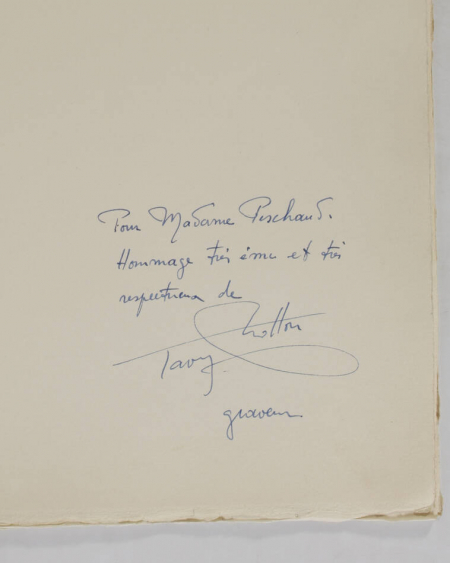 Pour Madame Peschaud.
Hommage très ému et très
respectueux de
Notton
Tavy
graveur